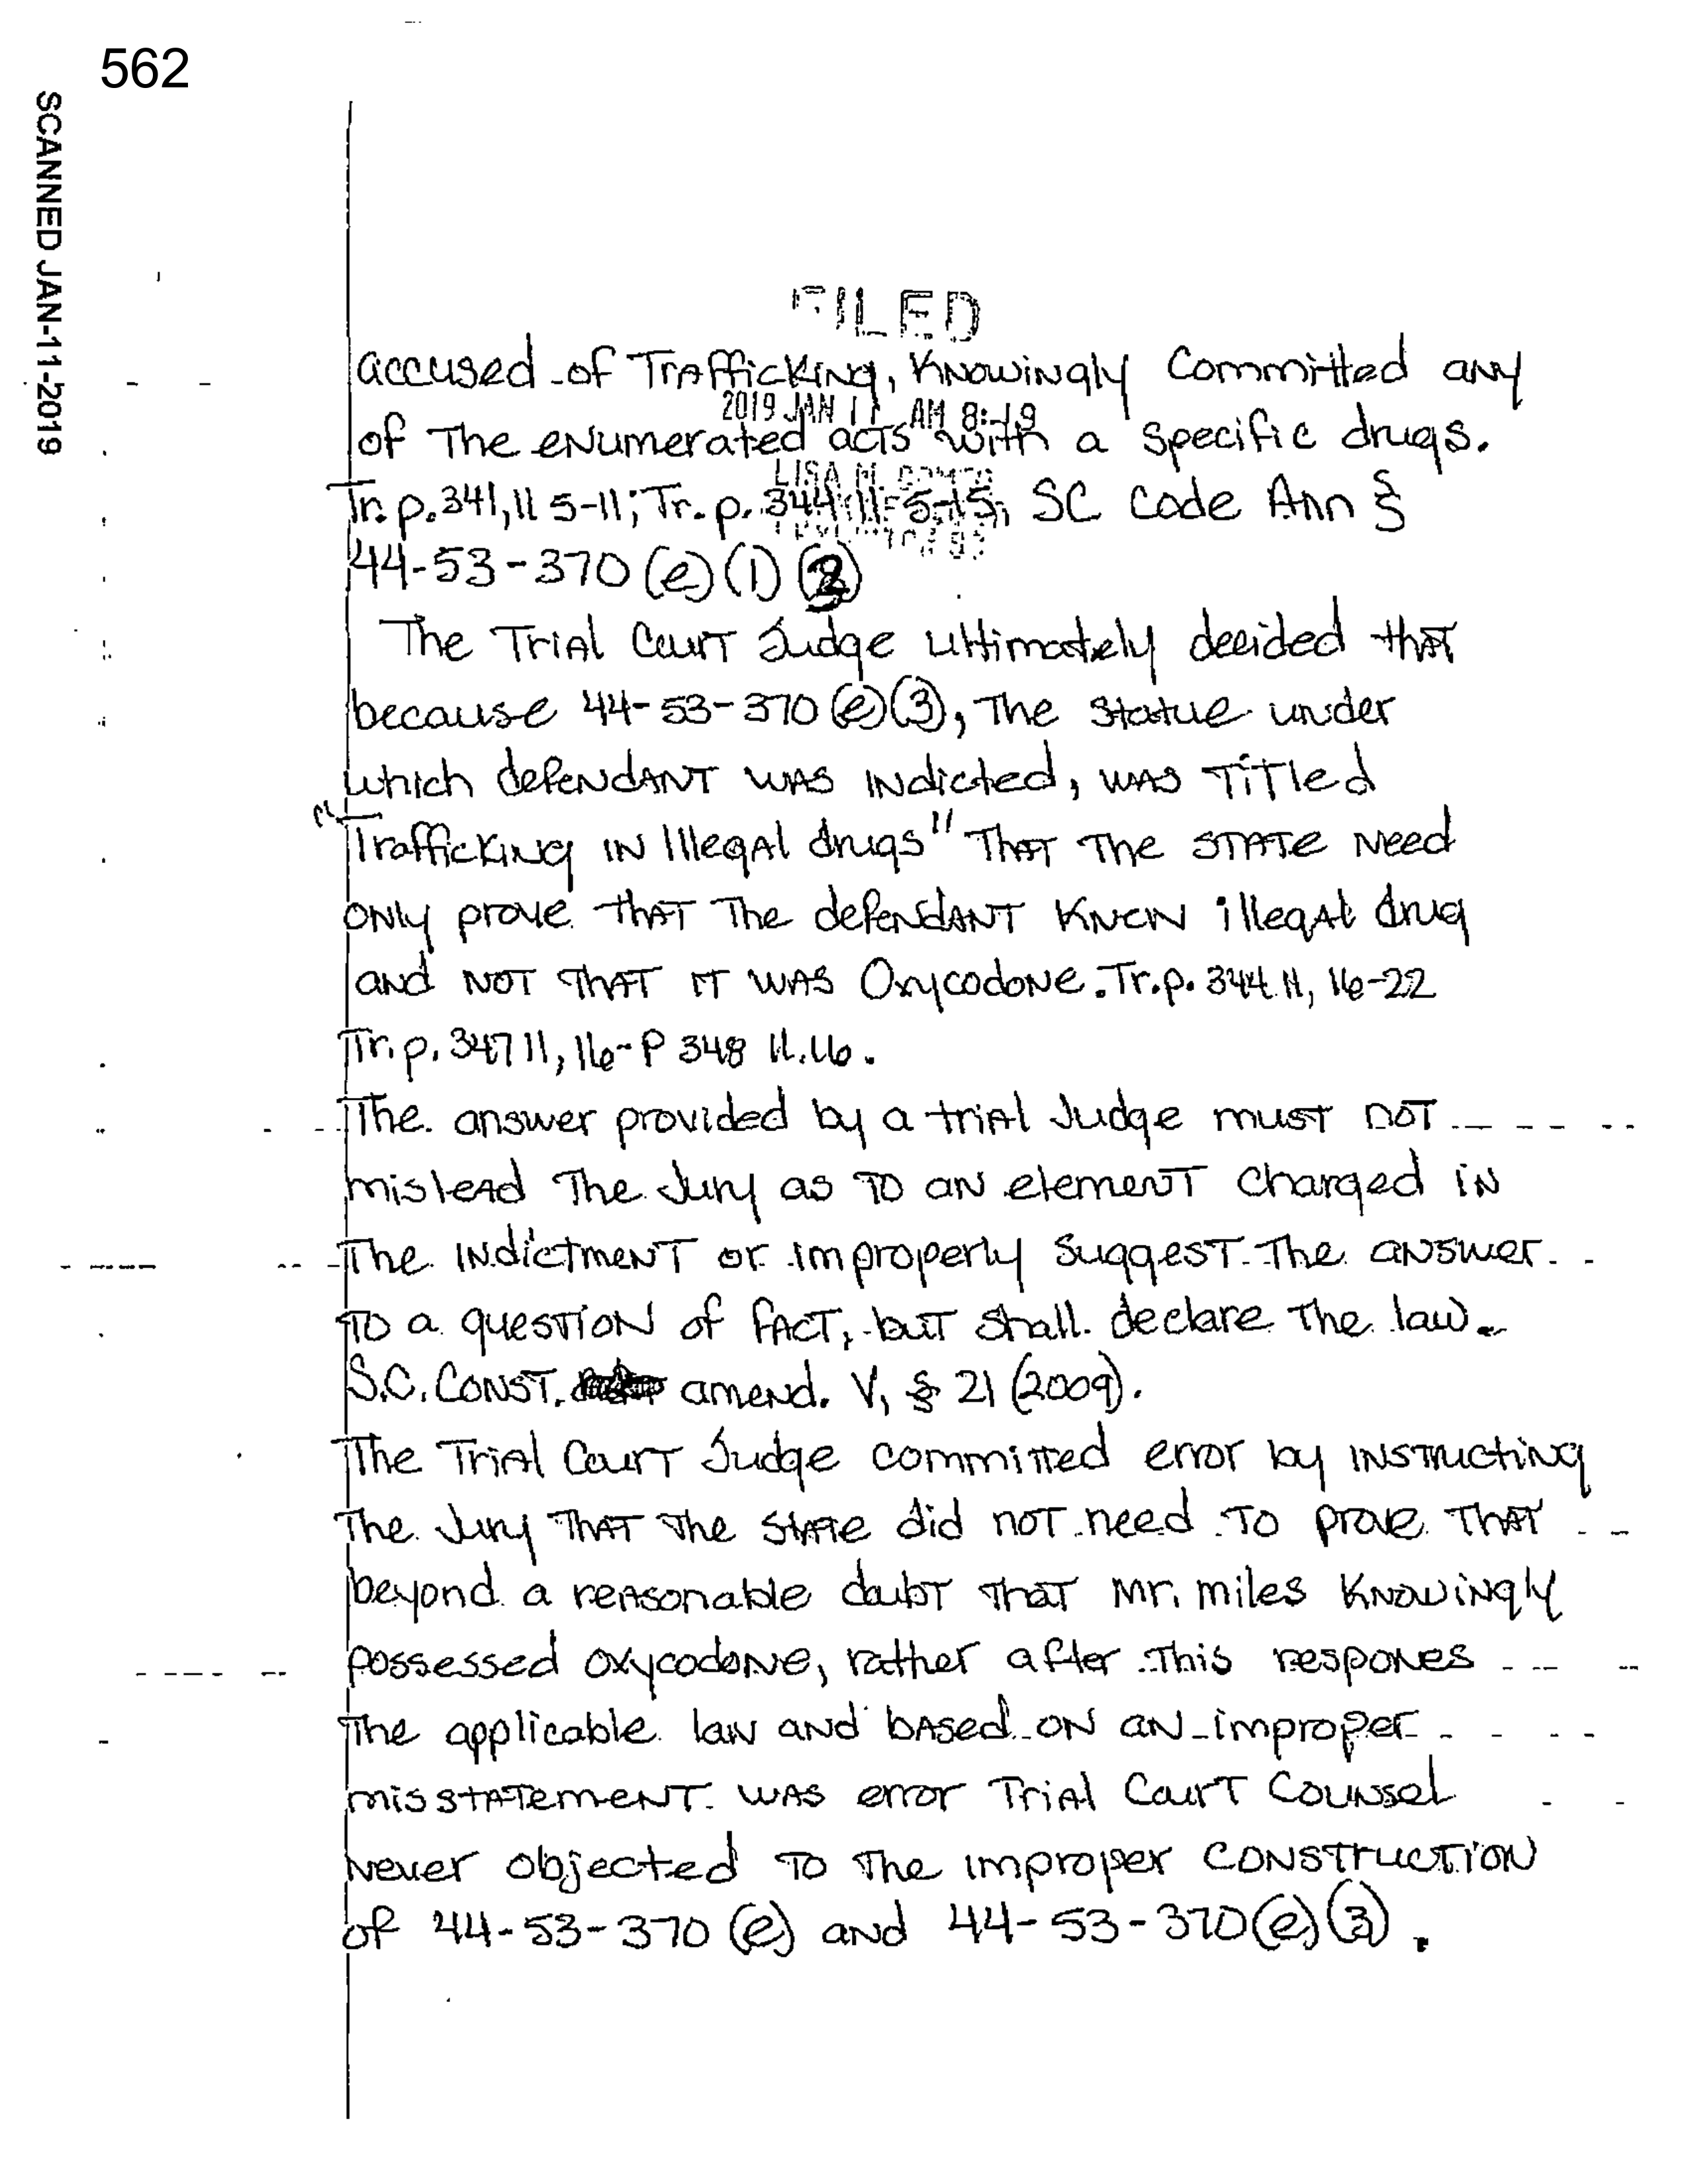 562
SCANNED JAN-11-2019
FILED
accused of Trafficking, Knowingly Committed any
2019 JAN 11 AM 8:19
of The enumerated acts with a specific drugs.
LISA M.
Tr. p. 341, ll 5-11; Tr. p. 344 ll 5-15, SC Code Ann §
44-53-370 (e)(1)(3)
The Trial Court Judge ultimately decided that
because 44-53-370 (e)(3), The statue under
which defendant was indicted, was Titled
"Trafficking in Illegal drugs" That The State need
only prove that The defendant knew illegal drug
and not that it was Oxycodone. Tr. p. 344 ll, 16-22
Tr. p. 347 ll, 16-P 348 ll.16.
The answer provided by a trial Judge must not
mislead The Jury as to an element charged in
The indictment or improperly suggest The answer
to a question of fact, but shall declare The law.
S.C. Const. amend. V, § 21 (2009).
The Trial Court Judge committed error by instructing
The Jury that the state did not need to prove that
beyond a reasonable doubt that Mr. miles knowingly
possessed oxycodone, rather after This respones
The applicable law and based on an improper
misstatement was error Trial Court Counsel
Never objected to The improper construction
of 44-53-370 (e) and 44-53-370 (e)(3).